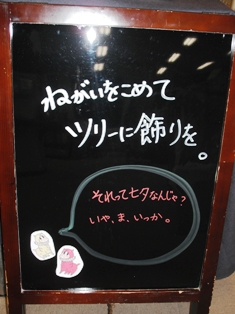 ねがいをこめて
ツリーに飾りを。
それって七夕なんじゃっ
いや、ま、いっか。